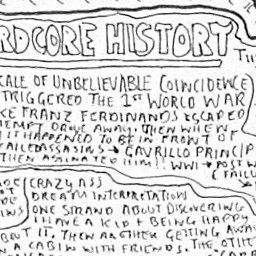 RDCORE HISTORY
CALE OF UNBELIEVABLE COINCIDENCE
TRIGGERED THE 1ST WORLD WAR
KE FRANZ FERDINANDS ESCAPED
EMPT DROVE AWAY. THEN WHEN
IT HAPPENED TO BE IN FRONT OF
FAILED ASSASINS → GAVRILLO PRINCIP
THEN ASSINATED HIM!! WWI → POST W
( FAILU
CRAZY ASS
DREAM INTERPRETATION
ONE STRAND ABOUT DISCOVERING
I HAVE A KID + BEING HAPPY
BOUT IT. THEN ANOTHER GETTING AWAY
A CABIN WITH FRIENDS. THE OTHE